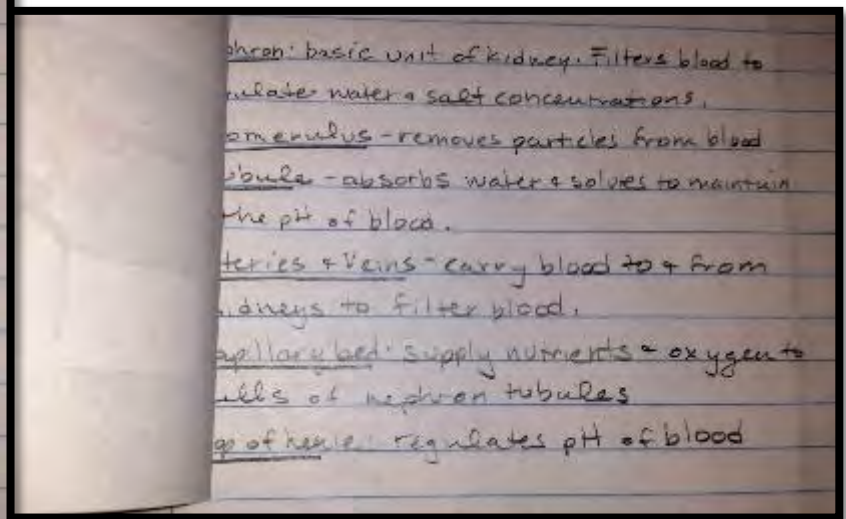 phron: basic unit of kidney. Filters blood to
ulate water & salt concentrations.
omerulus - removes particles from blood
bule - absorbs water & solutes to maintain
the pH of blood.
teries & Veins - carry blood to & from
idneys to filter blood.
apillary bed: supply nutrients & oxygen to
ells of nephron tubules
op of henle: regulates pH of blood